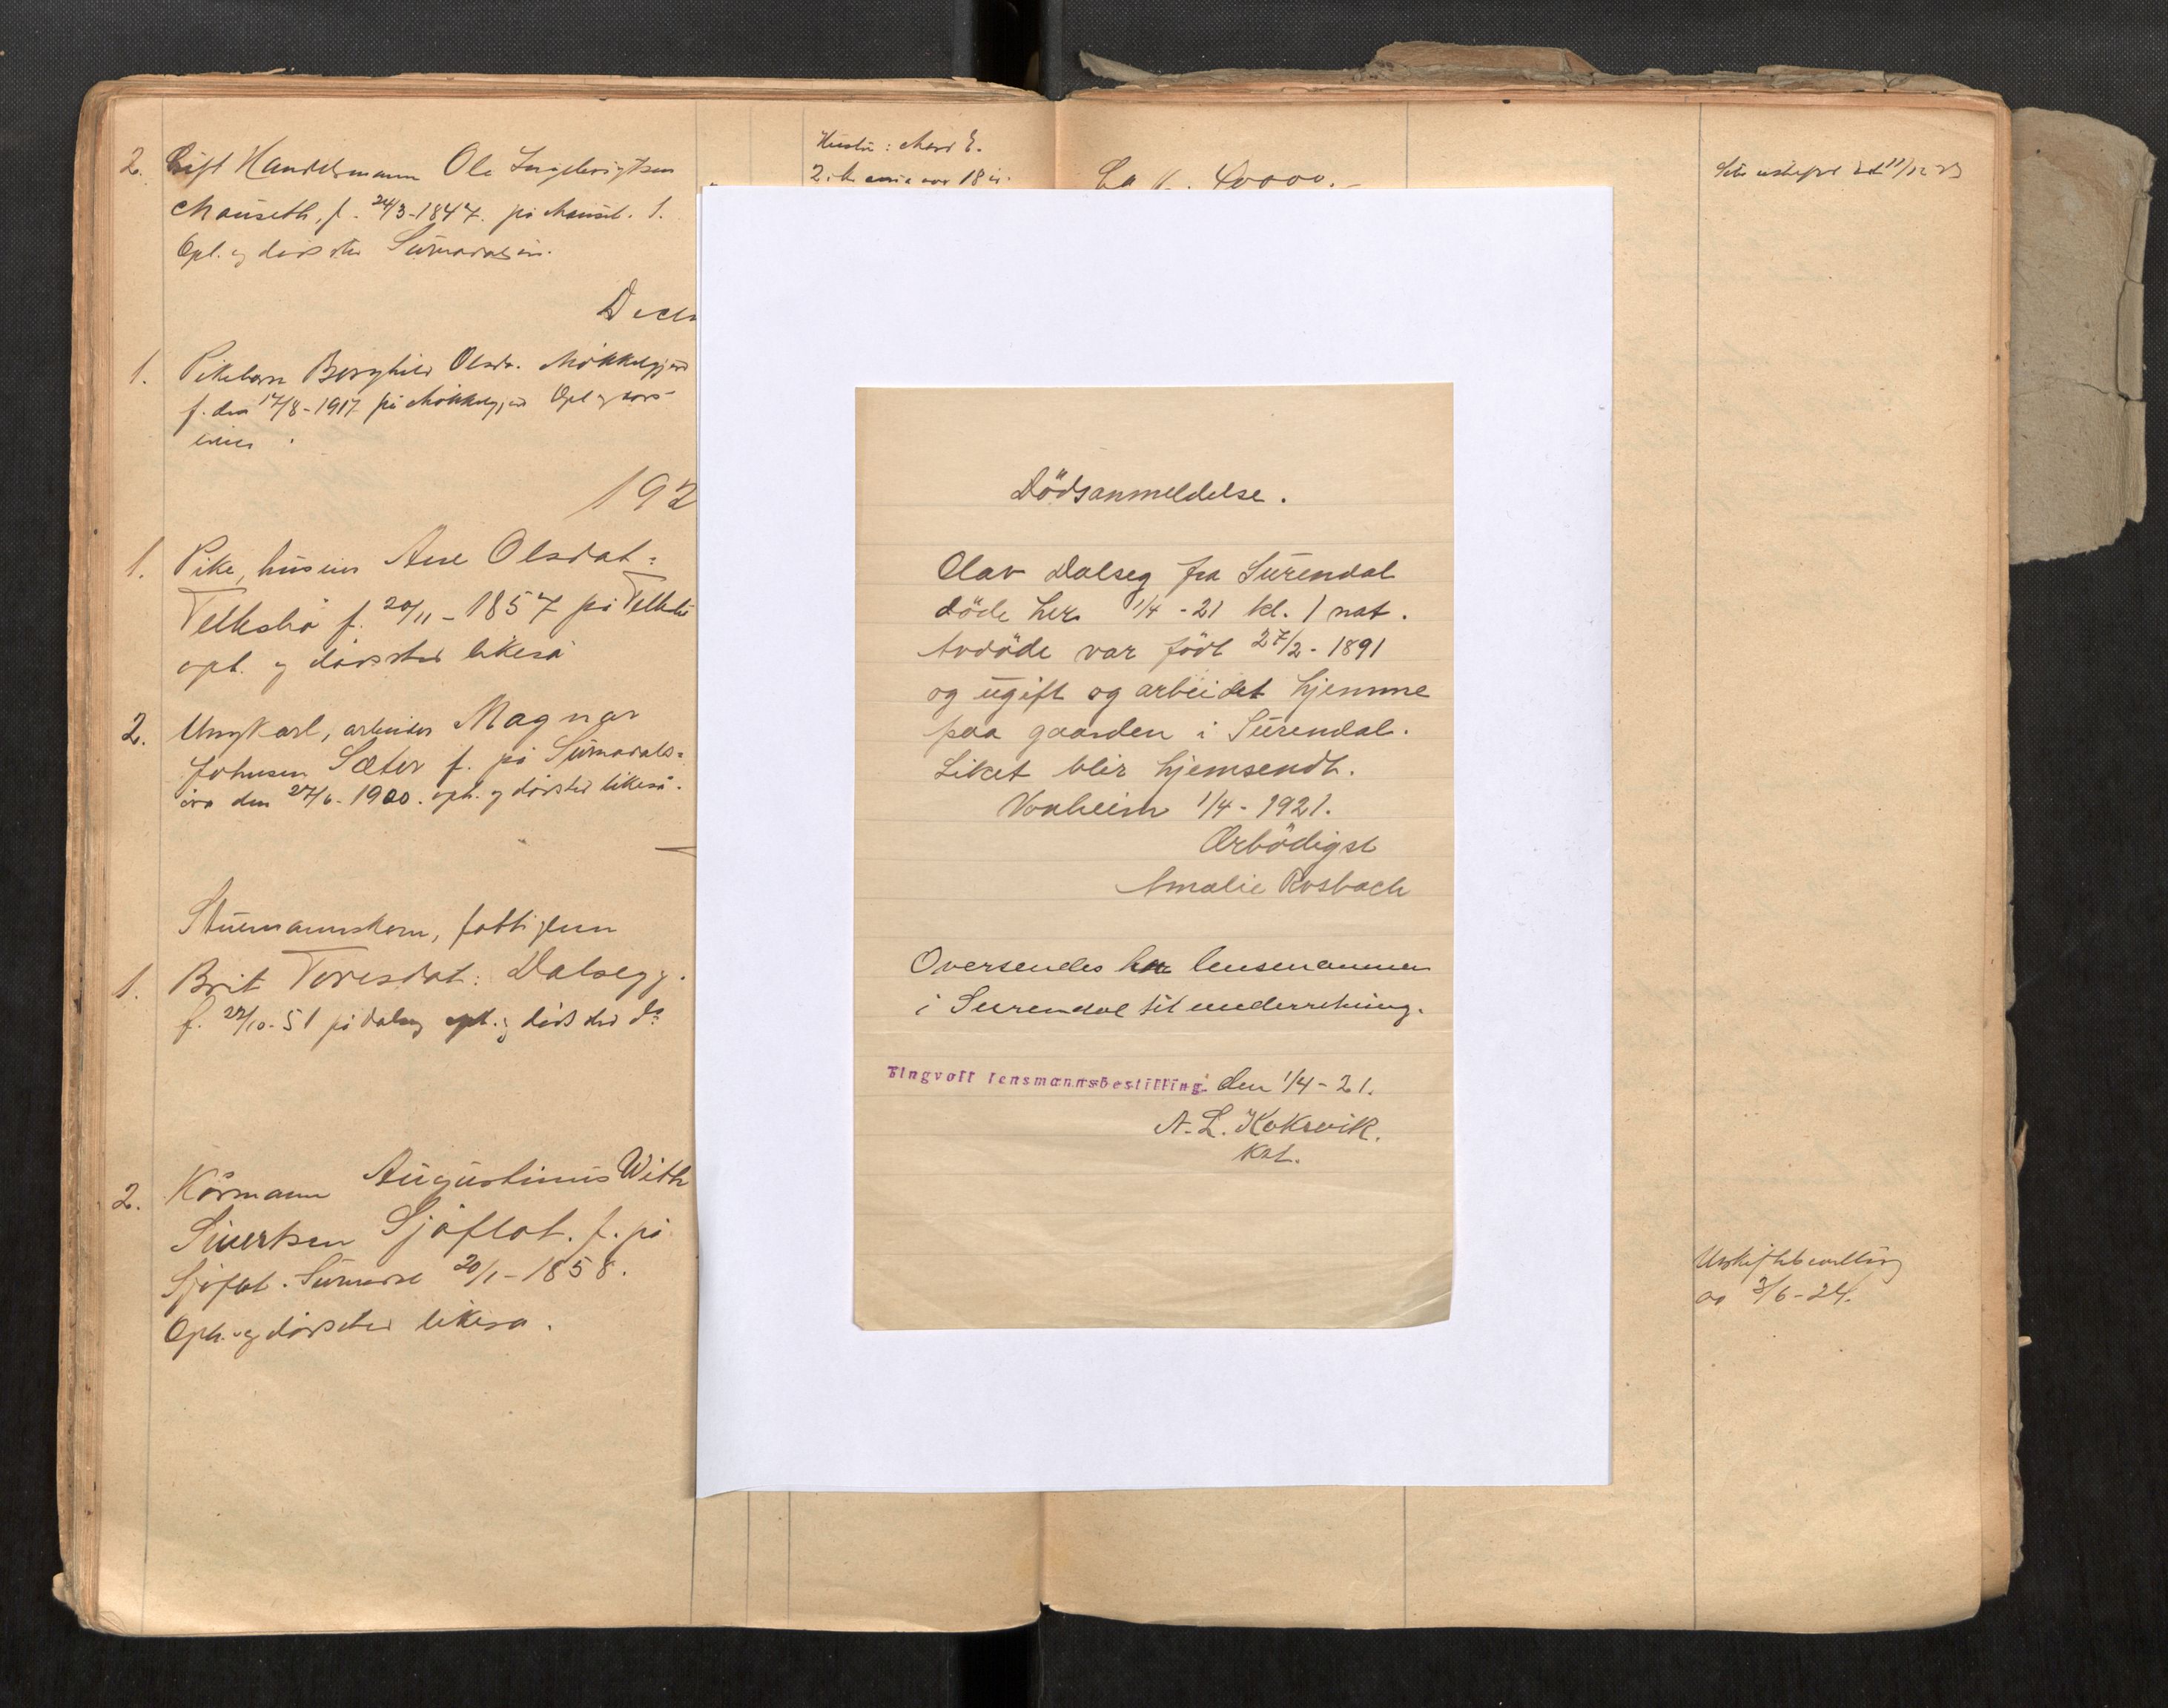 2. Gift Handelsmann Ole Ingebrigtsen
Mauseth, f. 24/3-1847. på Mauset. S.
Opl. og dødssted Surnadalsøra.
Hustru: Mari E.
2: over 18 år.
Ca kr. 40000.-
11/12 23
Dece
1. Pikebarn Borghild Olsdr. Mökkelgjerd
f. den 17/8-1917 på Mökkelgjerd Opl og
192
1. Pike, Ane Olsdat:
Telksbø f. 20/11-1857 på Telksbø
oph. og dødssted likeså
2. Ungkarl, arbeider Magnar
Johnsen Sæter f. på Surnadals=
øra den 27/6-1900. oph. og dødssted likeså.
fattiglem
1. Brit Toresdat: Dalsegg.
f. 22/10-51 på Dalseg oph. og dødssted do
2. Kårmann Augustinus With
Sivertsen Sjøflot. f. på
Sjøflot. Surnadal 20/1-1858.
Oph. og dødssted likeså.
Dödsanmeldelse.
Olav Dalseg fra Surendal
döde her 1/4-21 kl. 1 nat.
Avdöde var födt 27/2-1891
og ugift og arbeidet hjemme
paa gaarden i Surendal.
Liket blir hjemsendt.
Vonheim 1/4-1921.
Ærbödigst
Amalie Rosbach
Oversendes hr. lensmannen
i Surendal til underretning.
Tingvoll lensmannsbestilling den 1/4-21.
A. L. Koksvik.
Kst.
Uskiftebevilling
av 3/6-24.